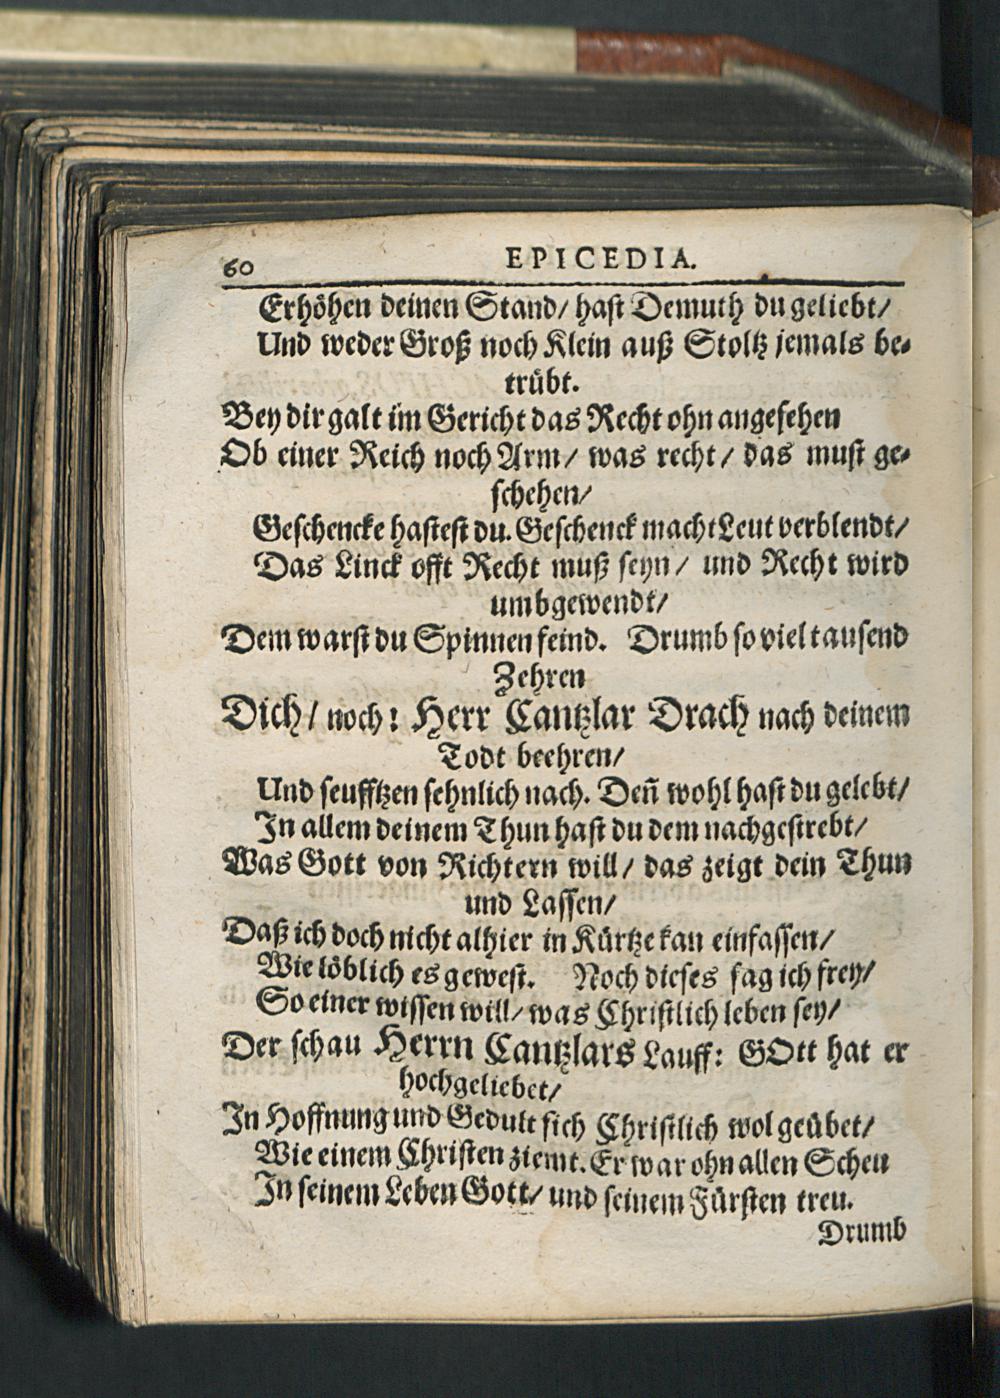 60 EPICEDIA.
Erhöhen deinen Stand/ hast Demuth du geliebt/
Und weder Groß noch Klein auß Stoltz jemals be-
trübt.
Bey dir galt im Gericht das Recht ohn angesehen
Ob einer Reich noch Arm/ was recht/ das must ge-
schehen/
Geschencke hastest du. Geschenck macht Leut verblendt/
Das Linck offt Recht muß seyn/ und Recht wird
umbgewendt/
Dem warst du Spinnen feind. Drumb so viel tausend
Zehren
Dich/ noch! Herr Cantzlar Drach nach deinem
Todt beehren/
Und seufftzen sehnlich nach. Deñ wohl hast du gelebt/
In allem deinem Thun hast du dem nachgestrebt/
Was Gott von Richtern will/ das zeigt dein Thun
und Lassen/
Daß ich doch nicht alhier in Kürtze kan einfassen/
Wie löblich es gewest. Noch dieses sag ich frey/
So einer wissen will/ was Christlich leben sey/
Der schau Herrn Cantzlars Lauff: GOtt hat er
hochgeliebet/
In Hoffnung und Gedult sich Christlich wol geübet/
Wie einem Christen ziemt. Er war ohn allen Scheu
In seinem Leben Gott/ und seinem Fürsten treu.
Drumb